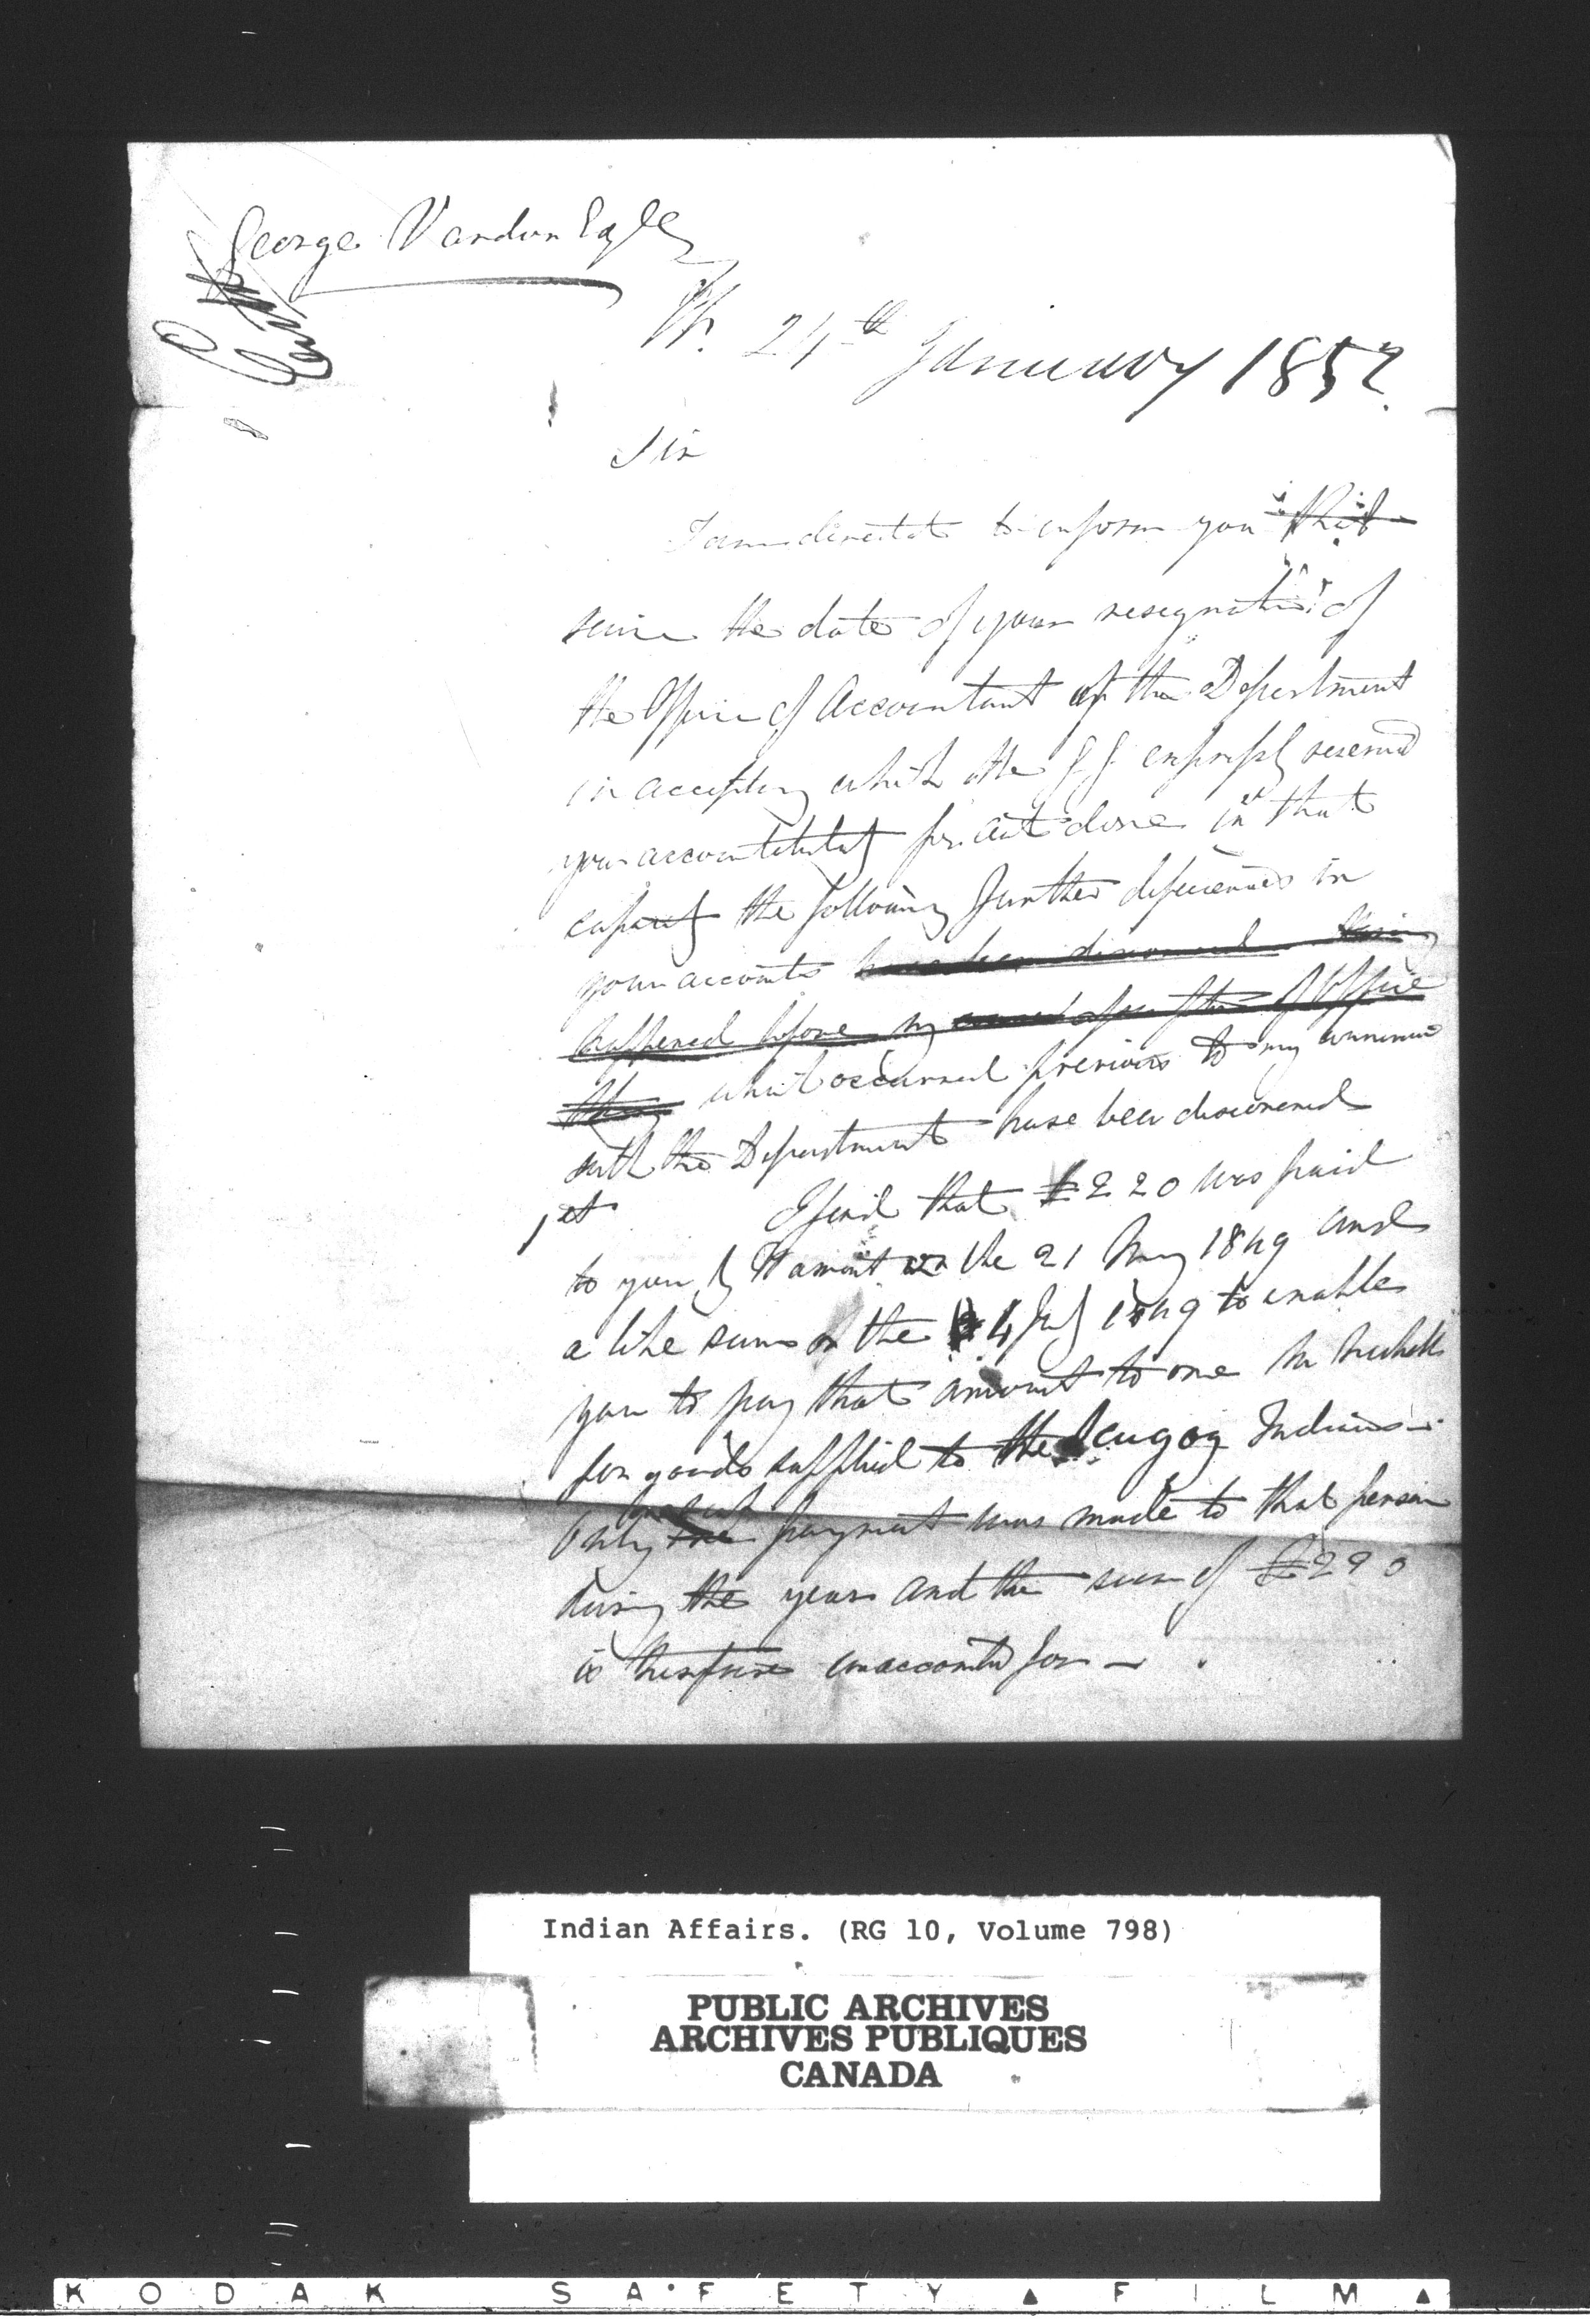 George Vardon Esqr
24th January 1852
Sir
I am directed to inform you that
since the date of your resignation of
the Office of Accountant of the Department
in accepting which the GG expressly reserved
your accountability for acts done in that
capacity the following further deficiencies in
your accounts have been discovered
happened before my assumption of Office
which occurred previous to my
with the Department have been discovered
1st I find that £220 was paid
to you by Warrant on the 21 May 1849 and
a like sum on the 4 July 1849 to enable
you to pay that amount to one Mr
for goods supplied to the Scugog Indians
Only payment was made to that person
during the year and the sum of £220
is therefore unaccounted for —
Indian Affairs. (RG 10, Volume 798)
PUBLIC ARCHIVES
ARCHIVES PUBLIQUES
CANADA
KODAK SAFETY FILM